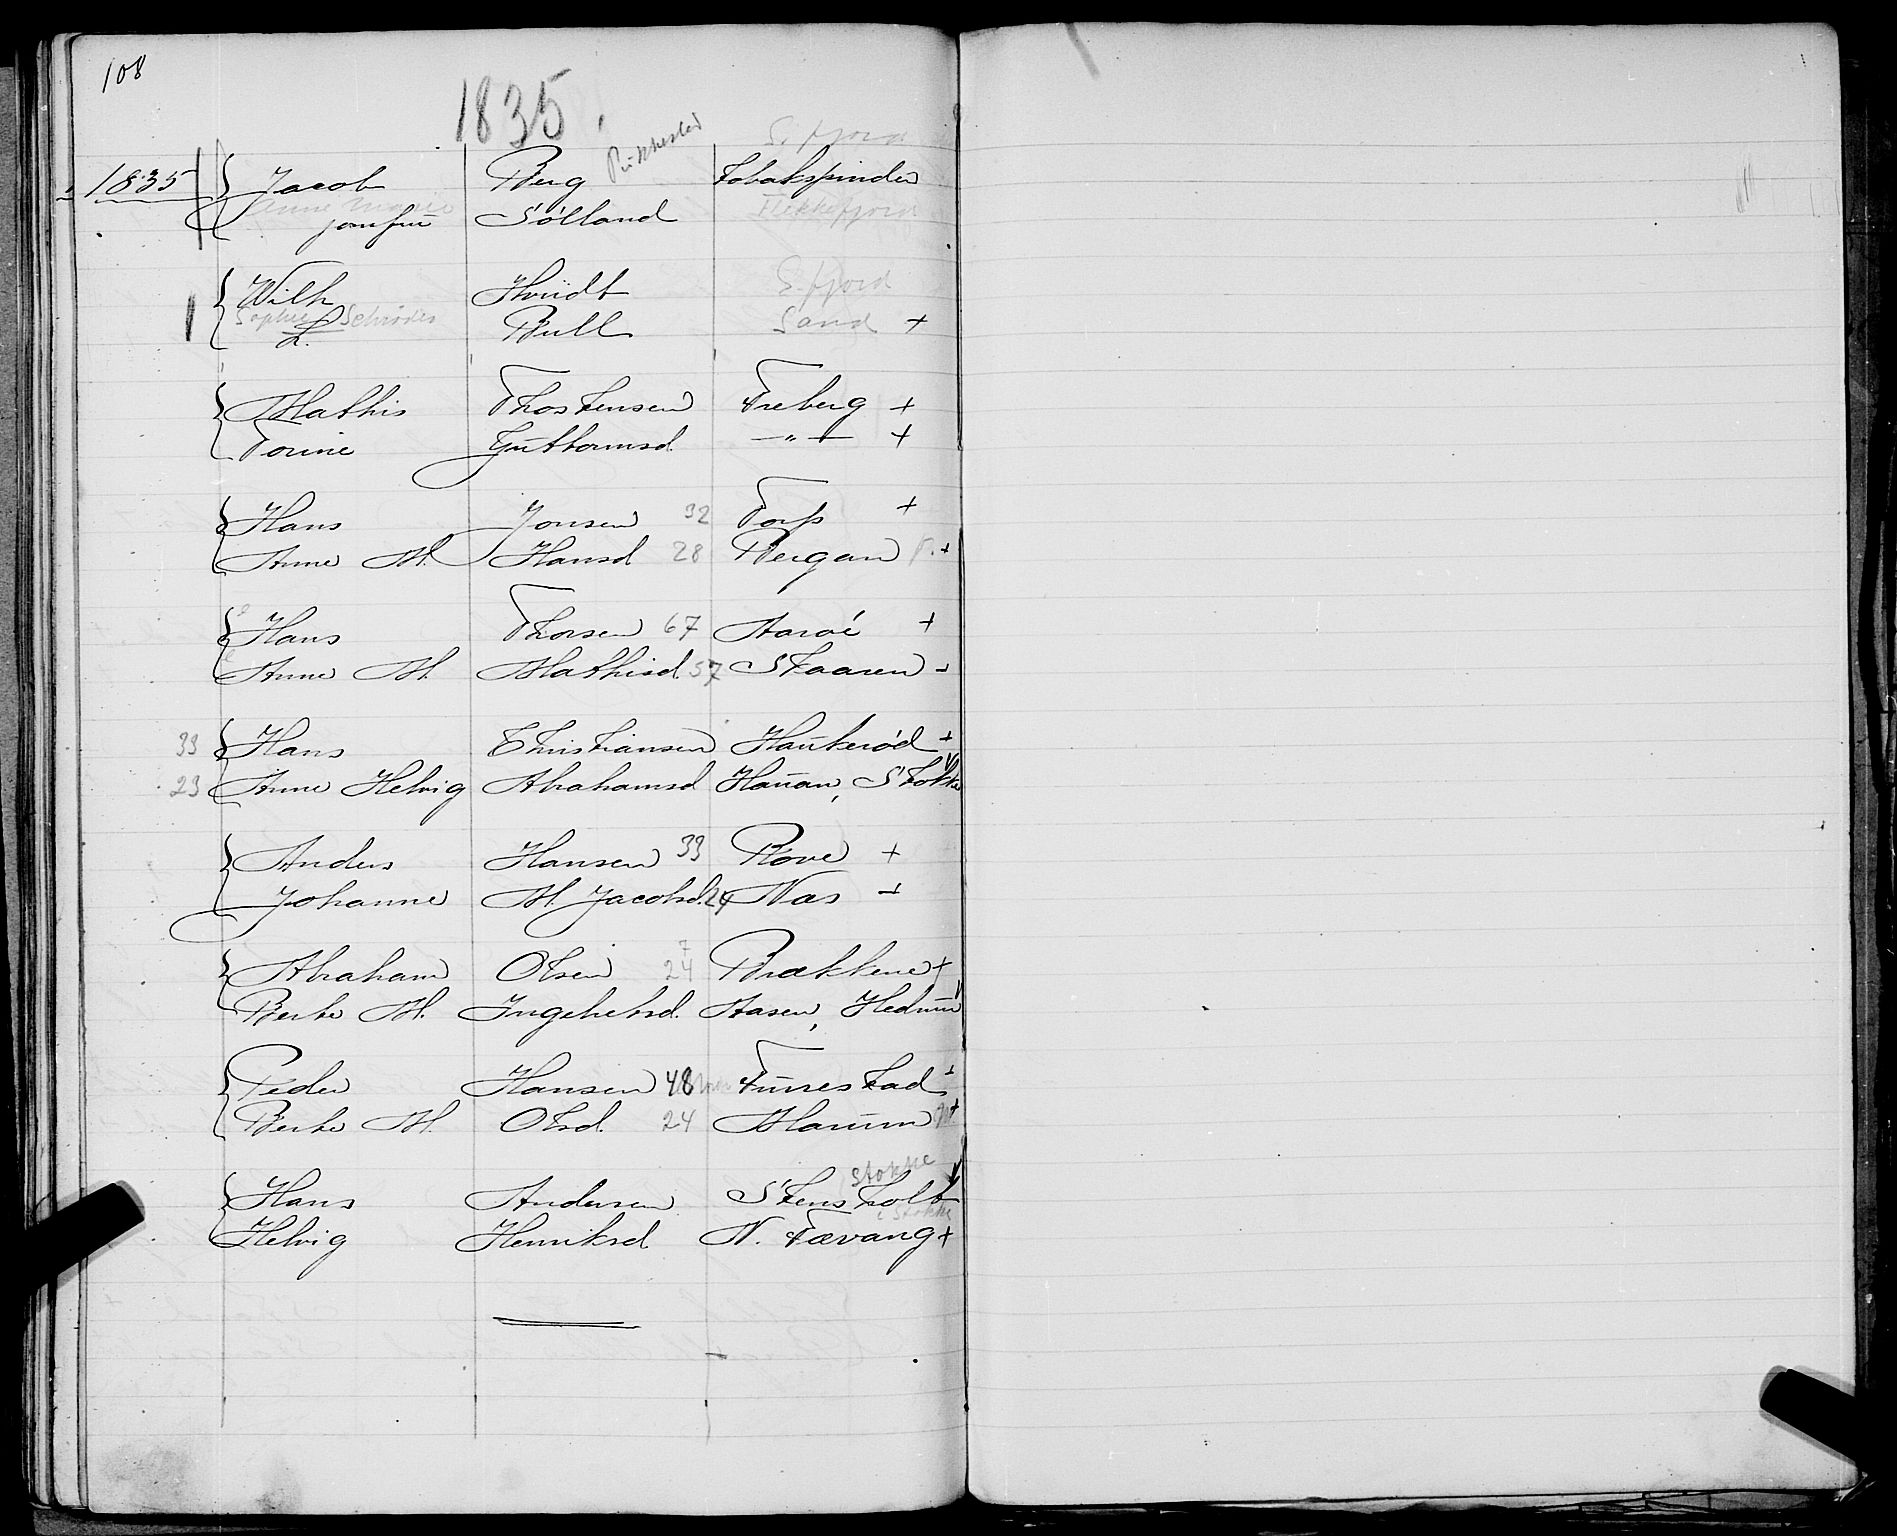 108
1835
S. fjord
1835 Jacob Berg Tobakspinder
Anne Marie Flekkefjord
jomfru Sölland
Wilh Hvidt S. fjord
Sophie Schrøder Sand +
L. Bull
Mathis Thostensen Freberg +
Torine Guttormsd. —"— +
Hans Jonsen 32 Torp +
Anne M. Hansd 28 Bergan +
Hans Thorsen 67 Aaroe +
Anne M. Mathisd. 57 Skaaren -
33 Hans Christiansen Haukeröd +
23 Anne Helvig Abrahamsd Hauan, Stokke
Anders Hansen 33 Rove +
Johanne M. Jacobsd. 24 Nas +
7
Abraham Olsen 24 Brækkene +
Berte M. Ingebretsd. Aasen, Hedrum
Peder Hansen 48 Furrestad +
Berte M. Olsd. 24 Marum +
Stokke
Hans Andersen Stensholt
i Stokke
Helvig Henriksd. N. Fævang +